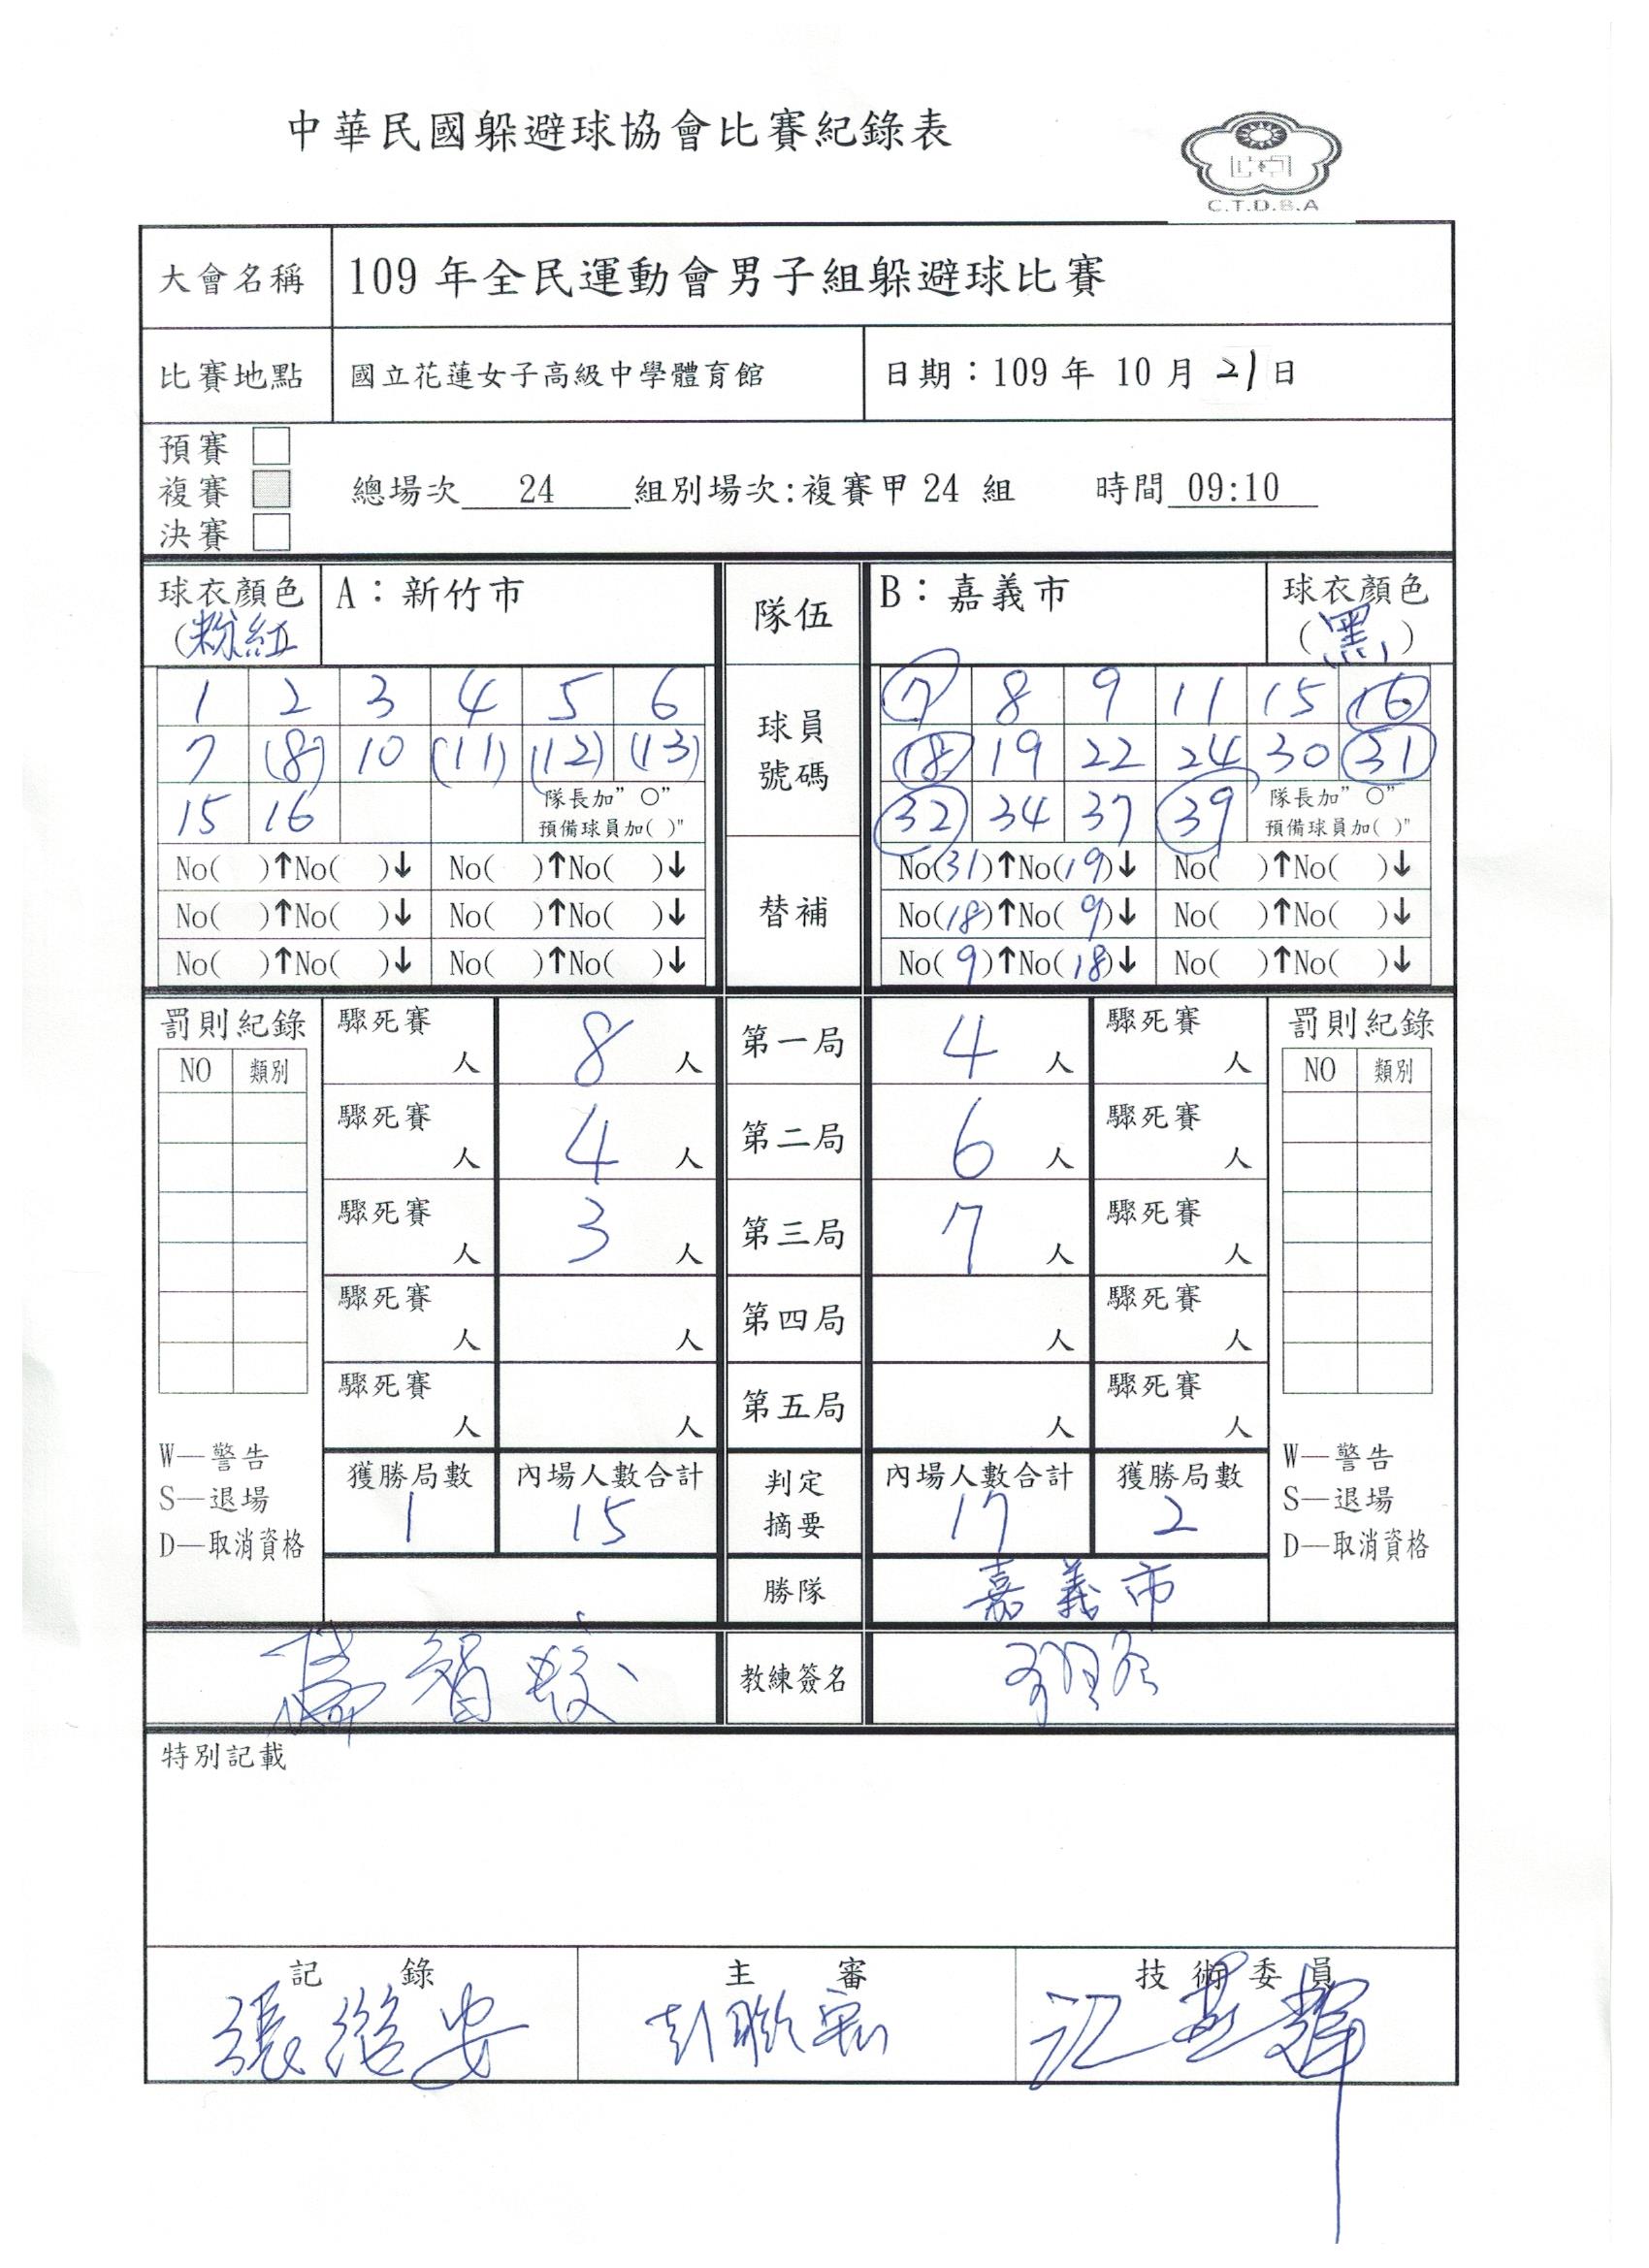 中華民國躲避球協會比賽紀錄表
C.T.D.B.A
大會名稱 109 年全民運動會男子組躲避球比賽
比賽地點 國立花蓮女子高級中學體育館 日期：109 年 10 月 21 日
預賽
複賽 總場次 24 組別場次:複賽甲 24 組 時間 09:10
決賽
球衣顏色 A：新竹市 隊伍 B：嘉義市 球衣顏色
(粉紅) (黑)
1 2 3 4 5 6 球員 7 8 9 11 15 16
7 (8) 10 (11) (12) (13) 號碼 18 19 22 24 30 31
15 16 隊長加" O" 32 34 37 39 隊長加" O"
預備球員加( )" 預備球員加( )"
No( )↑No( )↓ No( )↑No( )↓ No(31)↑No(19)↓ No( )↑No( )↓
No( )↑No( )↓ No( )↑No( )↓ 替補 No(18)↑No( 9)↓ No( )↑No( )↓
No( )↑No( )↓ No( )↑No( )↓ No( 9)↑No(18)↓ No( )↑No( )↓
罰則紀錄 驟死賽 人 8 人 第一局 4 人 驟死賽 人 罰則紀錄
NO 類別 NO 類別
驟死賽 人 4 人 第二局 6 人 驟死賽 人
驟死賽 人 3 人 第三局 7 人 驟死賽 人
驟死賽 人 人 第四局 人 驟死賽 人
驟死賽 人 人 第五局 人 驟死賽 人
W—警告 獲勝局數 內場人數合計 判定 內場人數合計 獲勝局數 W—警告
S—退場 1 15 摘要 17 2 S—退場
D—取消資格 D—取消資格
勝隊 嘉義市
教練簽名
特別記載
記 錄 主 審 技術委員
張繼安